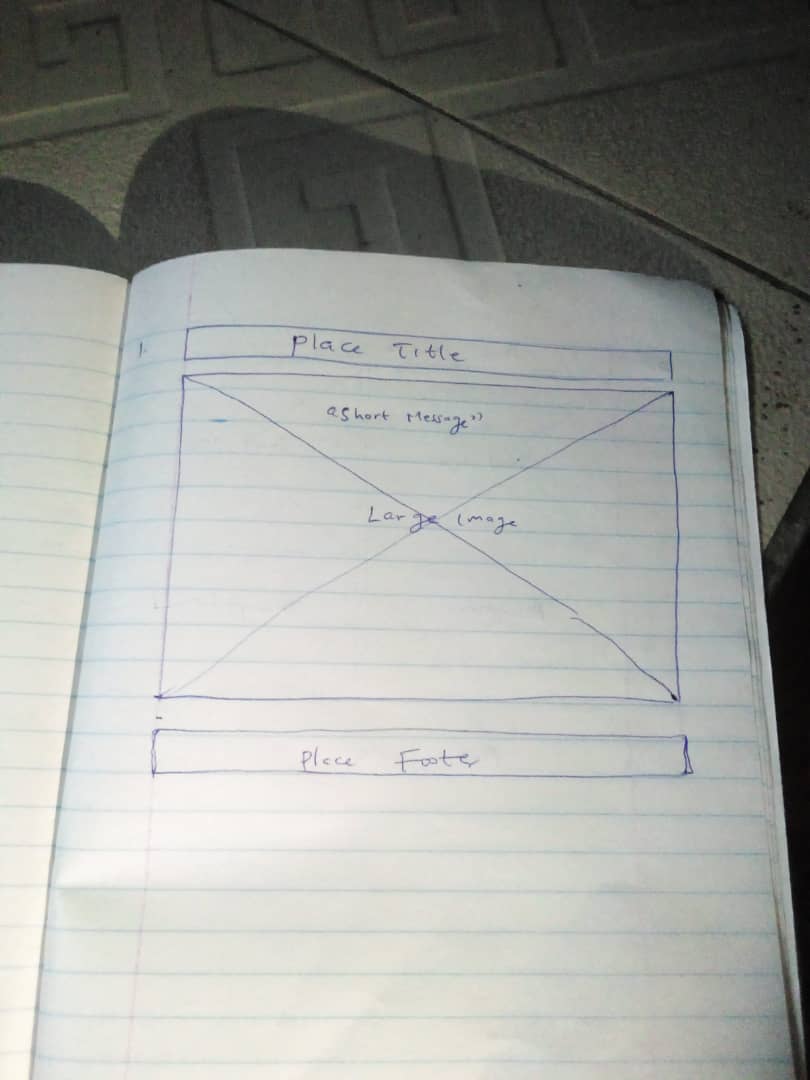 1.
Place Title
"Short Message"
Large Image
Place Footer